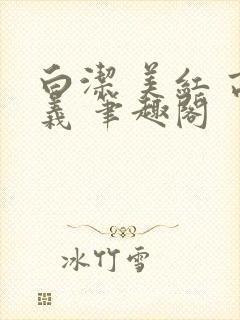 白潔 美红
義 筆趣閣
冰竹雪